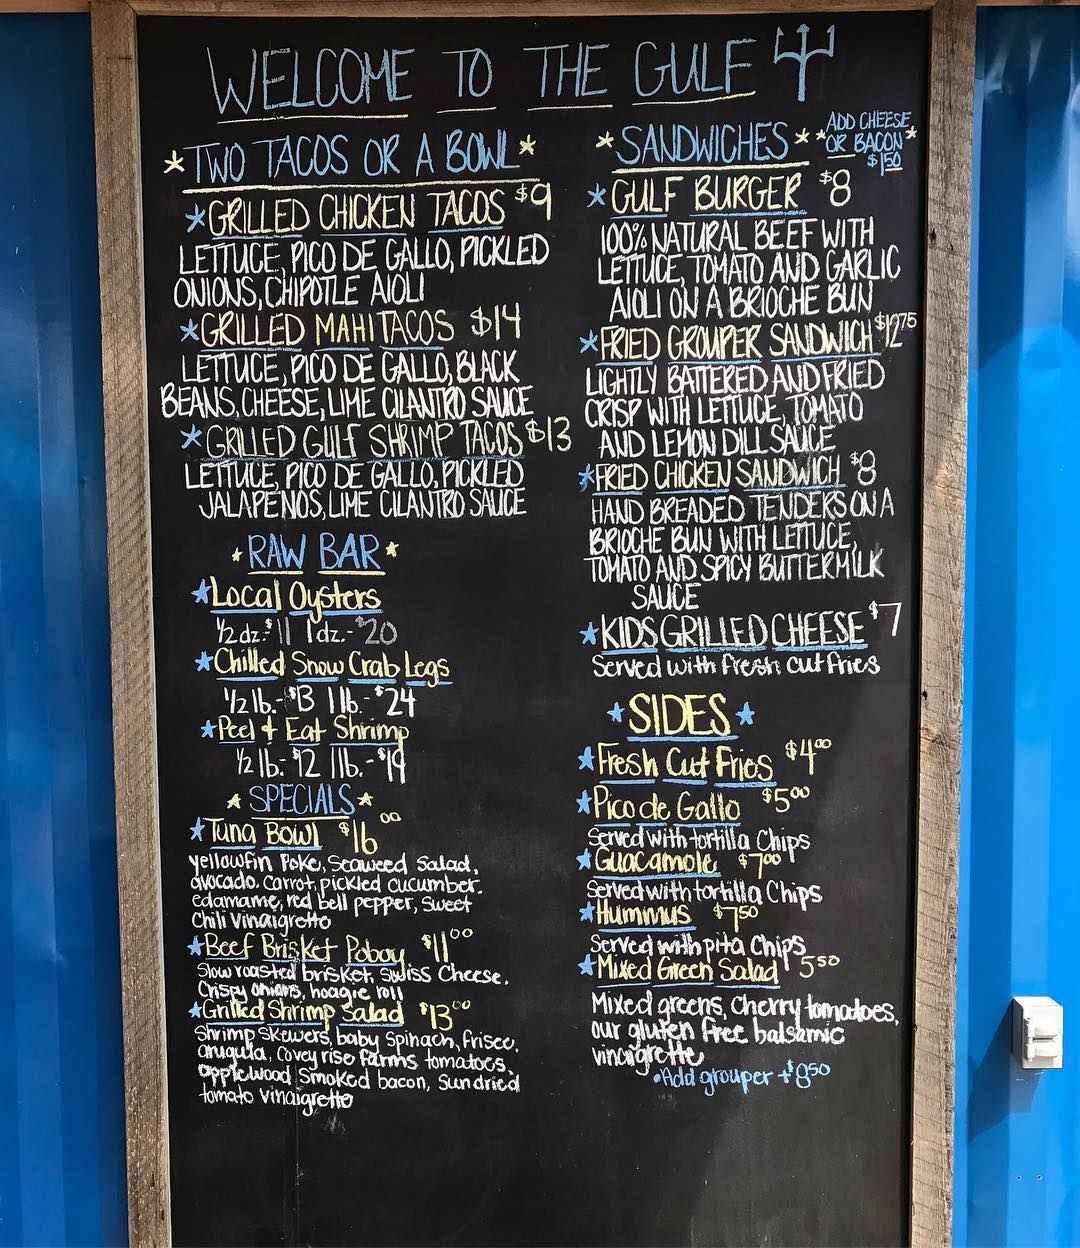 WELCOME TO THE GULF
*TWO TACOS OR A BOWL*
*GRILLED CHICKEN TACOS $9
LETTUCE, PICO DE GALLO, PICKLED
ONIONS, CHIPOTLE AIOLI
*GRILLED MAHI TACOS $14
LETTUCE, PICO DE GALLO, BLACK
BEANS, CHEESE, LIME CILANTRO SAUCE
*GRILLED GULF SHRIMP TACOS $13
LETTUCE, PICO DE GALLO, PICKLED
JALAPENOS, LIME CILANTRO SAUCE
*RAW BAR*
*Local Oysters
1/2 dz.-$11 1 dz.-$20
*Chilled Snow Crab Legs
1/2 lb.-$13 1 lb.-$24
*Peel + Eat Shrimp
1/2 lb.-$12 1 lb.-$19
*SPECIALS*
*Tuna Bowl $16.00
yellowfin Poke, Seaweed Salad,
avocado, carrot, pickled cucumber,
edamame, red bell pepper, sweet
Chili Vinaigrette
*Beef Brisket Poboy $11.00
Slow roasted brisket, Swiss Cheese,
Crispy onions, hoagie roll
*Grilled Shrimp Salad $13.00
Shrimp Skewers, baby Spinach, Frisee,
arugula, Covey rise Farms tomatoes,
applewood Smoked bacon, Sundried
tomato vinaigrette
*SANDWICHES*
*ADD CHEESE
OR BACON*
$1.50
*GULF BURGER $8
100% NATURAL BEEF WITH
LETTUCE, TOMATO AND GARLIC
AIOLI ON A BRIOCHE BUN
*FRIED GROUPER SANDWICH $12.75
LIGHTLY BATTERED AND FRIED
CRISP WITH LETTUCE, TOMATO
AND LEMON DILL SAUCE
*FRIED CHICKEN SANDWICH $8
HAND BREADED TENDERS ON A
BRIOCHE BUN WITH LETTUCE,
TOMATO AND SPICY BUTTERMILK
SAUCE
*KIDS GRILLED CHEESE $7
Served with fresh cut fries
*SIDES*
*Fresh Cut Fries $4.00
*Pico de Gallo $5.00
Served with tortilla Chips
*Guacamole $7.00
Served with tortilla Chips
*Hummus $7.50
Served with pita Chips
*Mixed Green Salad 5.50
Mixed greens, Cherry tomatoes,
our gluten free balsamic
vinaigrette
•Add grouper +8.50